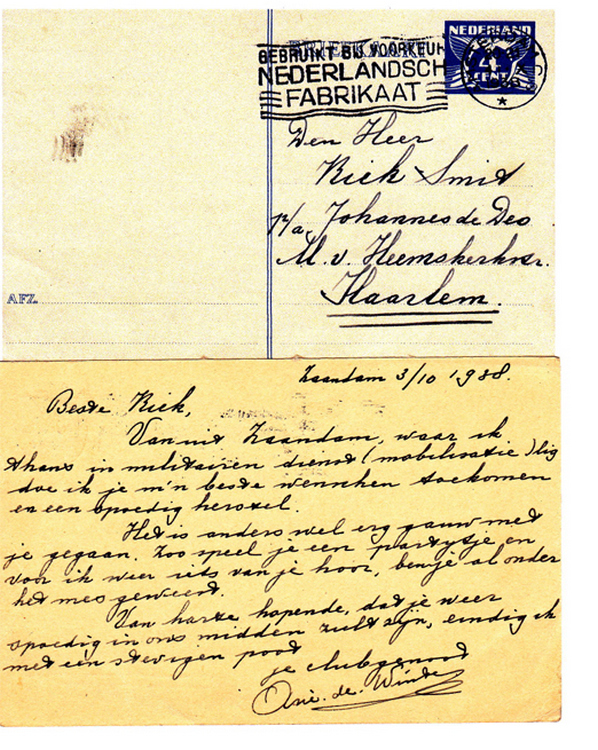 BRIEFKAART
GEBRUIKT BIJ VOORKEUR
NEDERLANDSCH
FABRIKAAT
NEDERLAND
4
CENT
Den Heer
Kiek Smit
p/a. Johannes de Deo
M. v. Heemskerkstr.
Haarlem.
AFZ.
Zaandam 3/10 1938.
Beste Kiek,
Van uit Zaandam, waar ik
thans in militairen dienst (mobilisatie) lig
doe ik je m'n beste wenschen toekomen
en een spoedig herstel.
Het is anders wel erg gauw met
je gegaan. Zoo speel je een partytje en
voor ik weer iets van je hoor, ben je al onder
het mes geweest.
Van harte hopende, dat je weer
spoedig in ons midden zult zijn, eindig ik
met een stevigen poot
je clubgenoot
Arie de Winde